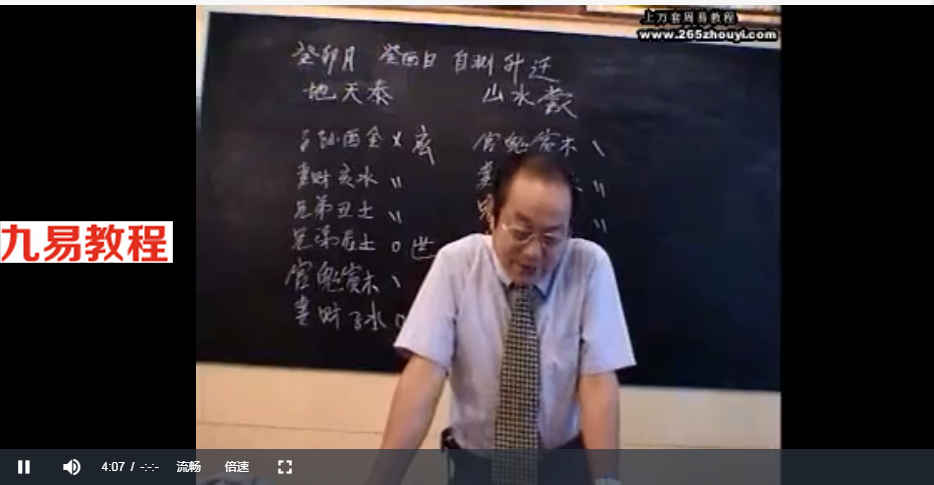 上万套周易教程
www.265zhouyi.com
癸卯月 癸酉日 自测升迁
地天泰 山水蒙
子孙酉金 x 应 官鬼寅木 、
妻财亥水 〃
兄弟丑土 〃
兄弟辰土 o 世
官鬼寅木 、
妻财子水
九易教程
4:07 / -:-:-
流畅
倍速